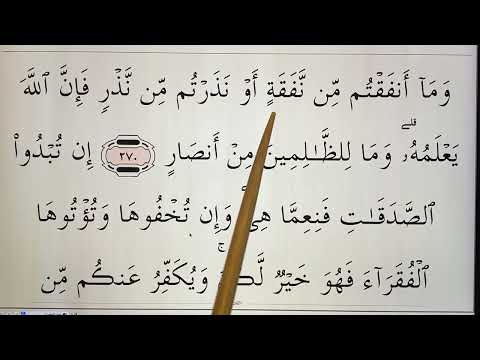 وَمَآ أَنفَقْتُم مِّن نَّفَقَةٍ أَوْ نَذَرْتُم مِّن نَّذْرٍ فَإِنَّ ٱللَّهَ
يَعْلَمُهُۥ ۗ وَمَا لِلظَّـٰلِمِينَ مِنْ أَنصَارٍ ٢٧٠ إِن تُبْدُوا۟
ٱلصَّدَقَـٰتِ فَنِعِمَّا هِىَ ۖ وَإِن تُخْفُوهَا وَتُؤْتُوهَا
ٱلْفُقَرَآءَ فَهُوَ خَيْرٌ لَّكُمْ ۚ وَيُكَفِّرُ عَنكُم مِّن